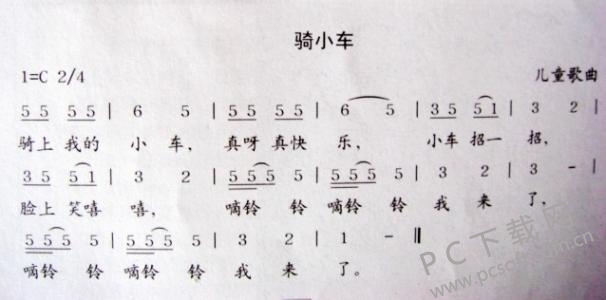 骑小车
1=C 2/4
儿童歌曲
5 5 5 5 | 6 5 | 5 5 5 5 | 6 5 | 3 5 5 1 | 3 2 |
骑上 我的 小 车, 真呀 真快 乐, 小车 招一 招,
3 5 5 1 | 3 2 | 5 5 5 5 | 5 5 5 5 | 3 2 | 3 - |
脸上 笑嘻 嘻, 嘀铃 铃 嘀铃 铃 我 来 了,
5 5 5 5 | 5 5 5 5 | 3 2 | 1 - ‖
嘀铃 铃 嘀铃 铃 我 来 了。
PC下载网